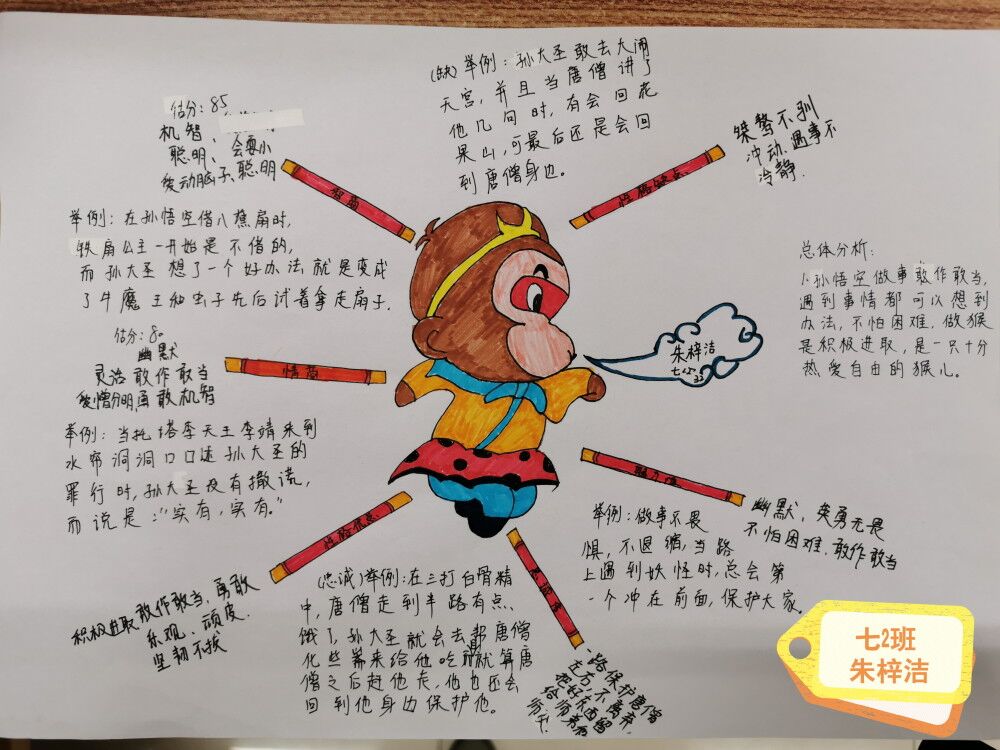 估分：85
机智、
聪明、会耍小
爱动脑子、聪明
智商
举例：在孙悟空借八樵扇时，
铁扇公主一开始是不借的，
而孙大圣想了一个好办法就是变成
了牛魔王和虫子先后试着拿走扇子.
(缺)举例：孙大圣敢去大闹
天宫，并且当唐僧讲了
他几句时，有会回花
果山，可最后还是会回
到唐僧身边。
桀骜不驯
冲动.遇事不
冷静.
性格缺点
总体分析：
小孙悟空做事敢作敢当，
遇到事情都可以想到
办法，不怕困难.做猴
是积极进取，是一只十分
热爱自由的猴儿。
朱梓洁
七(2)
33
估分：80
幽默
灵活敢作敢当
爱憎分明勇敢机智
情商
举例：当托塔李天王李靖来到
水帘洞洞口口述孙大圣的
罪行时，孙大圣没有撒谎，
而说是:“实有，实有.”
性格优点
积极进取敢作敢当、勇敢
乐观、顽皮.
坚韧不拔
(忠诚)举例：在三打白骨精
中，唐僧走到半路有点
饿了，孙大圣就会去帮唐僧
化些斋来给他吃，就算唐
僧之后赶他走，他也还会
回到他身边保护他。
魅力值
幽默，英勇无畏
不怕困难、敢作敢当
举例：做事不畏
惧，不退缩，当路
上遇到妖怪时，总会第
一个冲在前面，保护大家.
一路保护唐僧
左右不离弃
把好东西留
给师弟和
师傅
七2班
朱梓洁